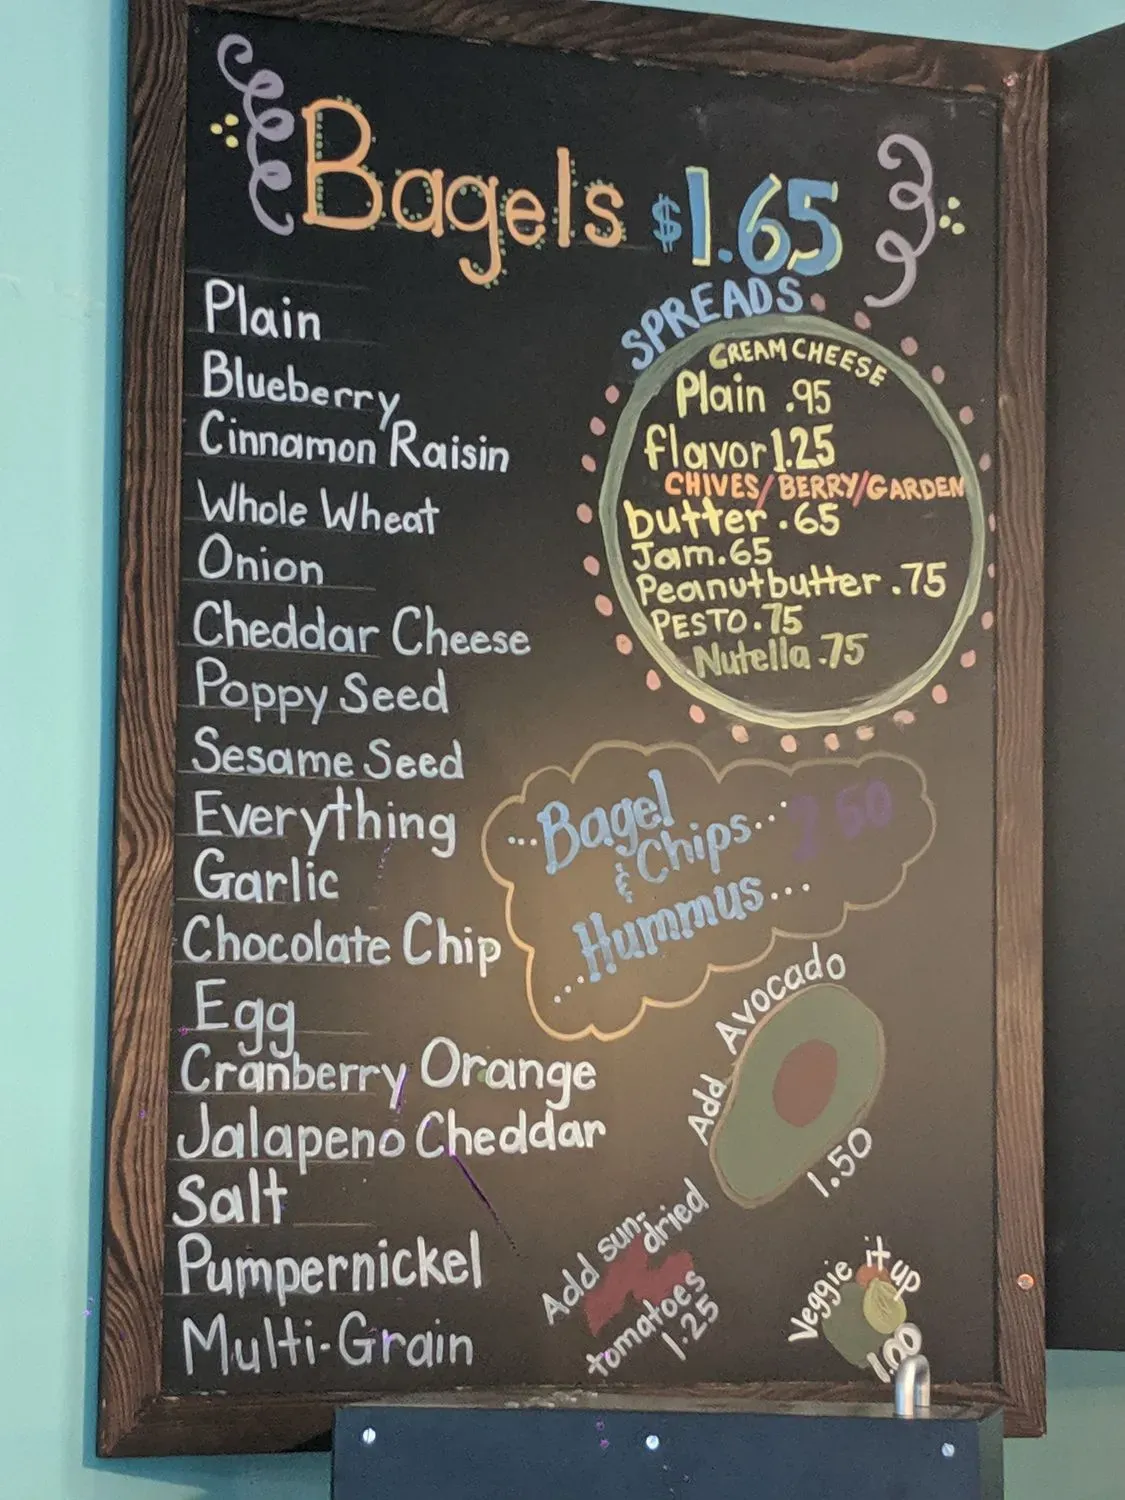 Bagels $1.65
Plain
Blueberry
Cinnamon Raisin
Whole Wheat
Onion
Cheddar Cheese
Poppy Seed
Sesame Seed
Everything
Garlic
Chocolate Chip
Egg
Cranberry Orange
Jalapeno Cheddar
Salt
Pumpernickel
Multi-Grain
SPREADS
CREAM CHEESE
Plain .95
flavor 1.25
CHIVES/BERRY/GARDEN
butter .65
Jam .65
Peanutbutter .75
PESTO .75
Nutella .75
...Bagel
& Chips...
...Hummus...
Add Avocado
1.50
Add sun-
dried
tomatoes
1.25
Veggie it up
1.00